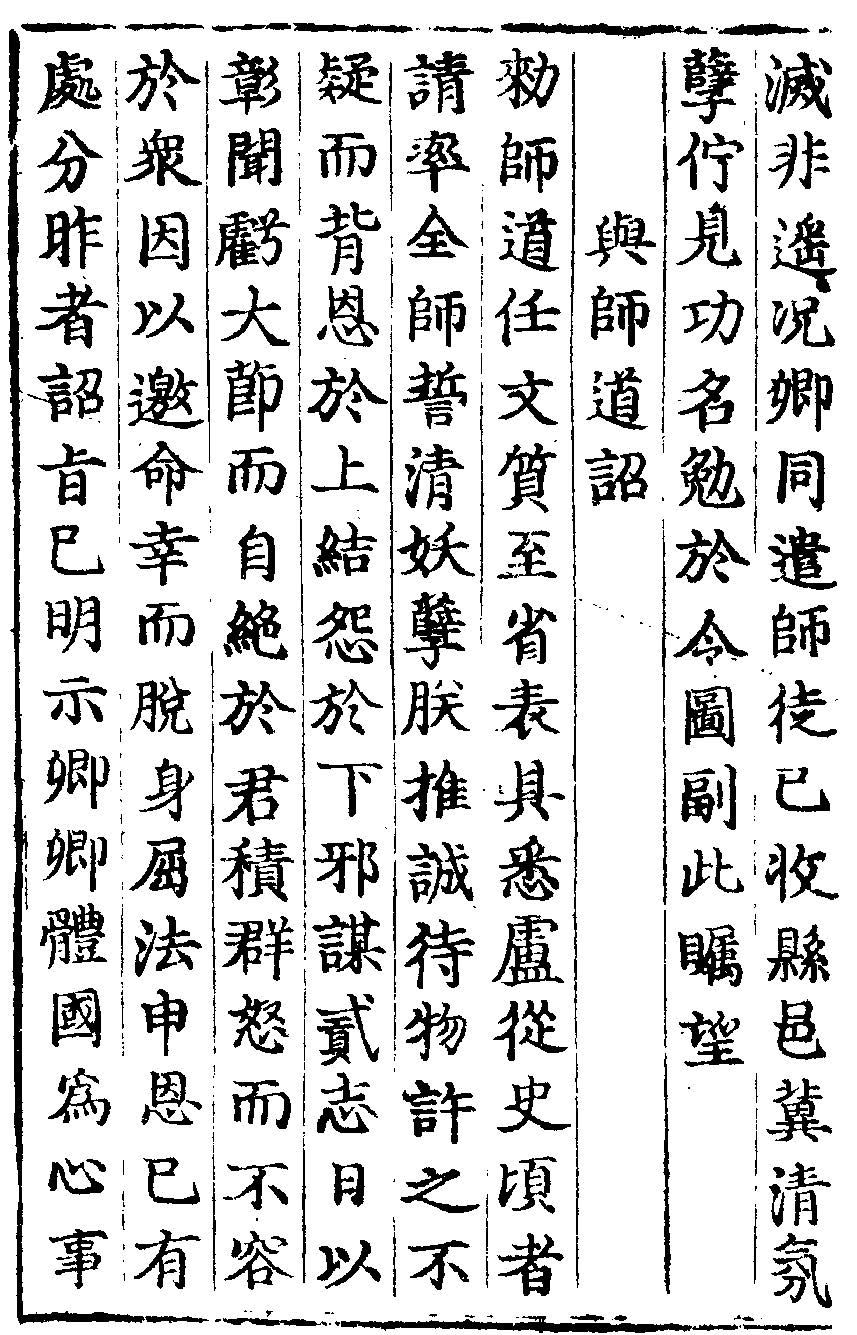 滅非遥况卿同遣師徒已收縣邑兾清氛
孽佇見功名勉於令圖副此矚望
與師道詔
勑師道任文質至省表具悉盧從史頃者
請率全師誓清妖孽朕推誠待物許之不
疑而背恩於上結怨於下邪謀貳志日以
彰聞虧大節而自絶於君積群怒而不容
於衆因以邀命幸而脫身屈法申恩已有
處分昨者詔㫖已明示卿卿體國為心事